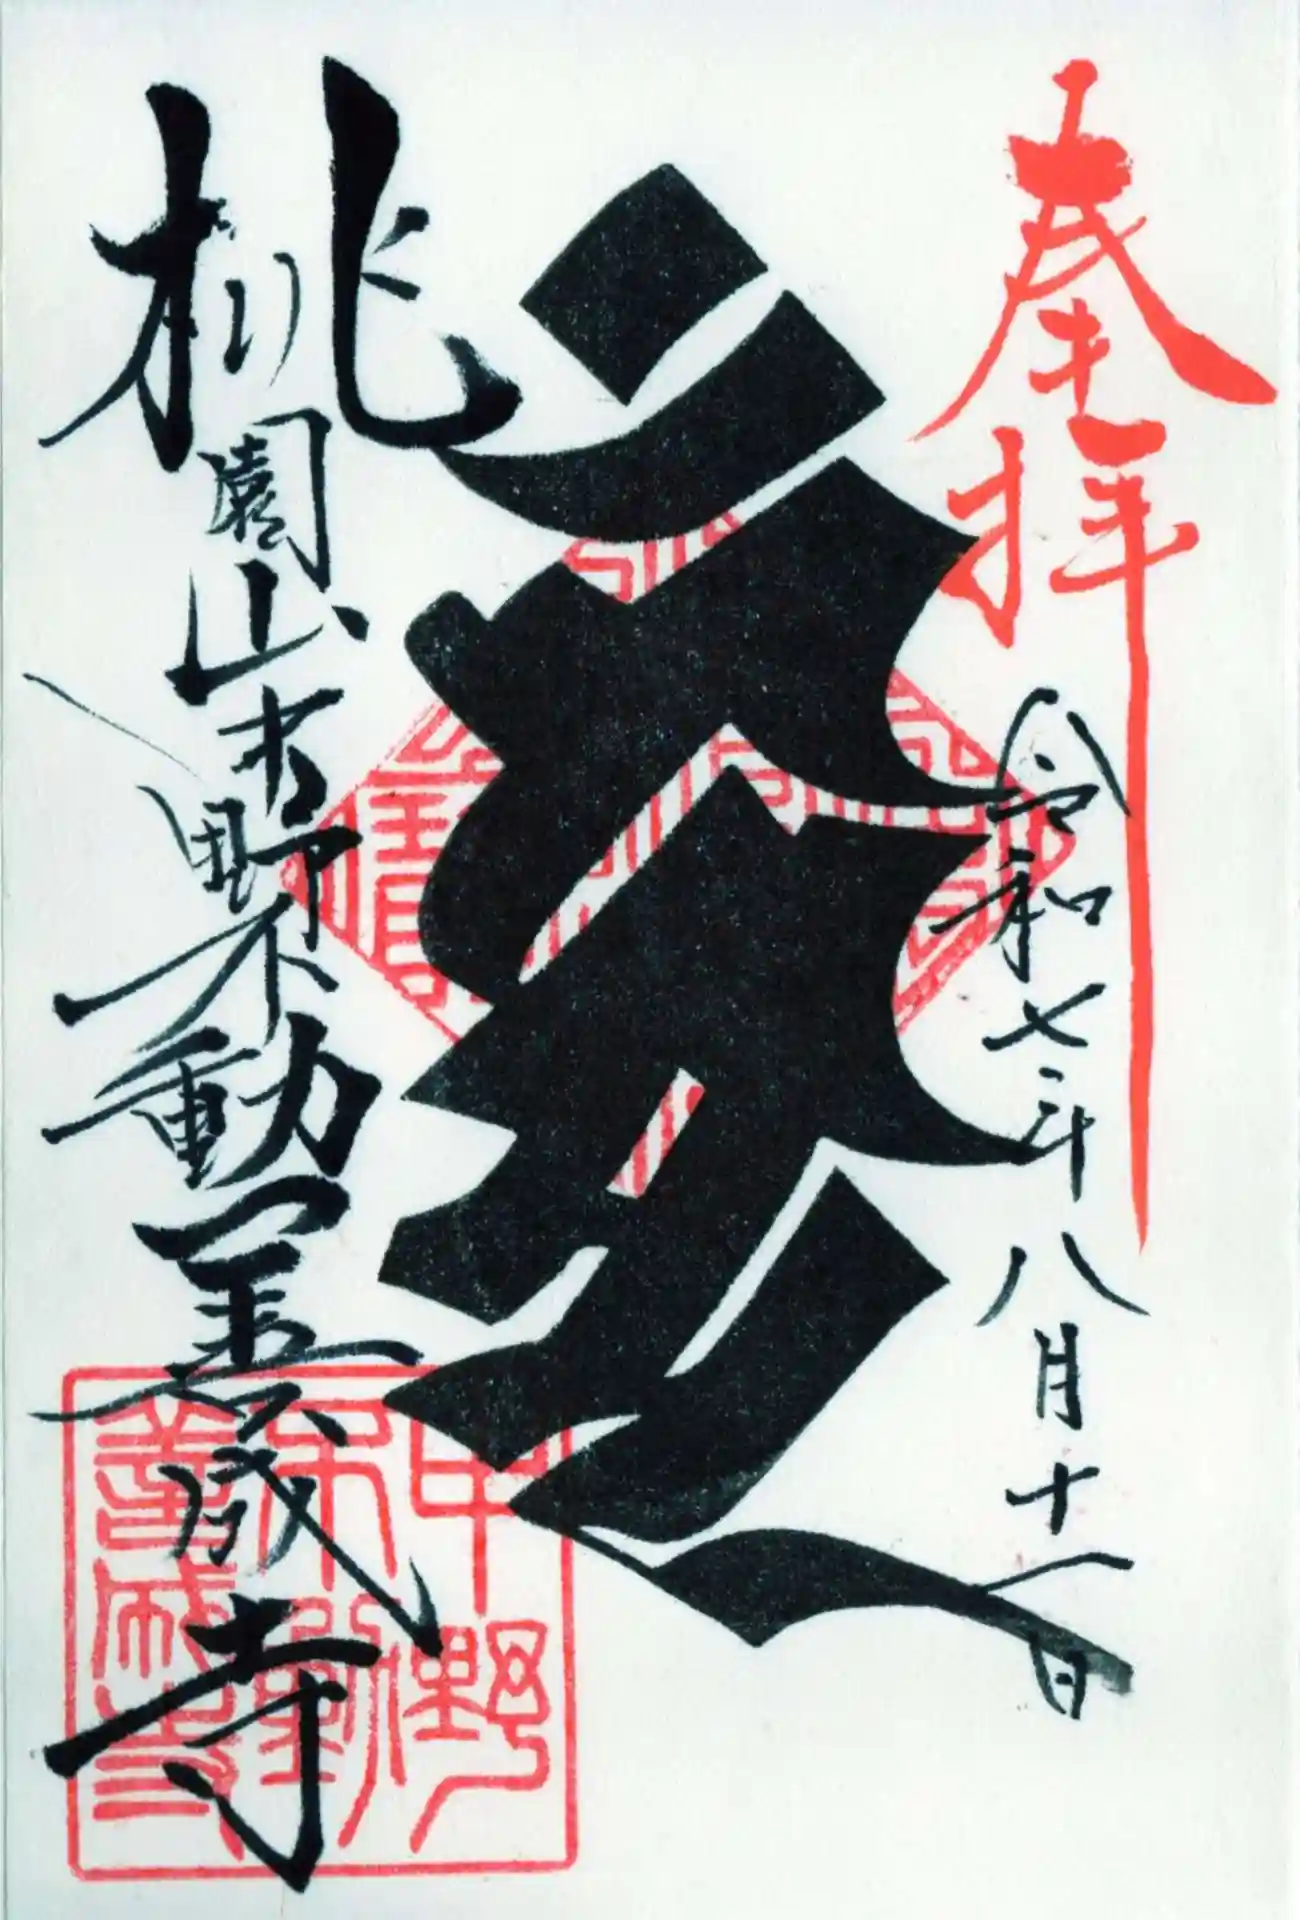 奉拝
令和七年八月十一日
桃園山中野不動善成寺
中野
不動
善成寺